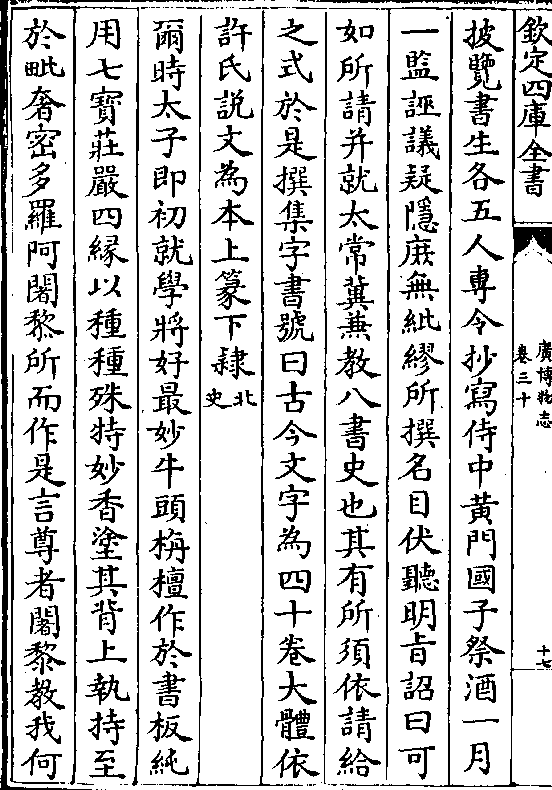 欽定四庫全書
廣博物志
卷三十
十七
披覽書生各五人專令抄寫侍中黄門國子祭酒一月
一監誣議疑隱庶無紕繆所撰名目伏聽明旨詔曰可
如所請并就太常冀兼教八書史也其有所須依請給
之式於是撰集字書號曰古今文字為四十卷大體依
許氏説文為本上篆下隸北史
爾時太子即初就學將好最妙牛頭栴檀作於書板純
用七寶莊嚴四緣以種種殊特妙香塗其背上執持至
於毗奢密多羅阿闍黎所而作是言尊者闍黎教我何